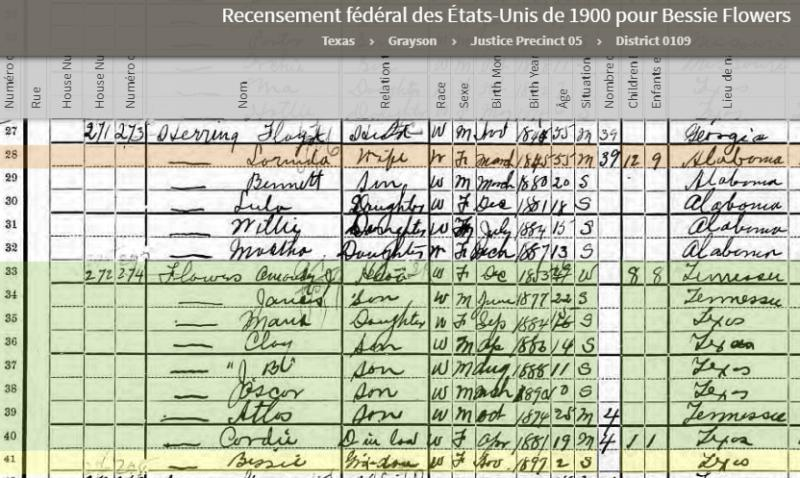 Recensement fédéral des États-Unis de 1900 pour Bessie Flowers
Texas › Grayson › Justice Precinct 05 › District 0109
Numéro d Rue House Nu House Nu Numéro c Nom Relation Race Sexe Birth Mon Birth Year Âge Situation Nombre d Children Enfants e Lieu de n
27 271 273 Herring W M 55 M 39 Georgia
28 Wife W F March 1845 55 M 39 12 9 Alabama
29 Bennett Son W M March 1880 20 S Alabama
30 Lula Daughter W F Dec 1881 18 S Alabama
31 Willie Daughter W F July 1884 15 S Alabama
32 Martha Daughter W F 1887 13 S Alabama
33 272 274 Flowers W F Dec W 8 8 Tennessee
34 James Son W M June 1877 22 S Tennessee
35 Daughter W F Sep 1884 S Texas
36 Clay Son W M Ap 14 S Texas
37 " J. B." Son W M Aug 1888 11 S Texas
38 Son W M S Texas
39 Son W M Oct 1874 25 M 4 Tennessee
40 Cordie D in law W F Apr 1881 19 M 4 1 1 Texas
41 Bessie W F Nov 1897 2 S Texas